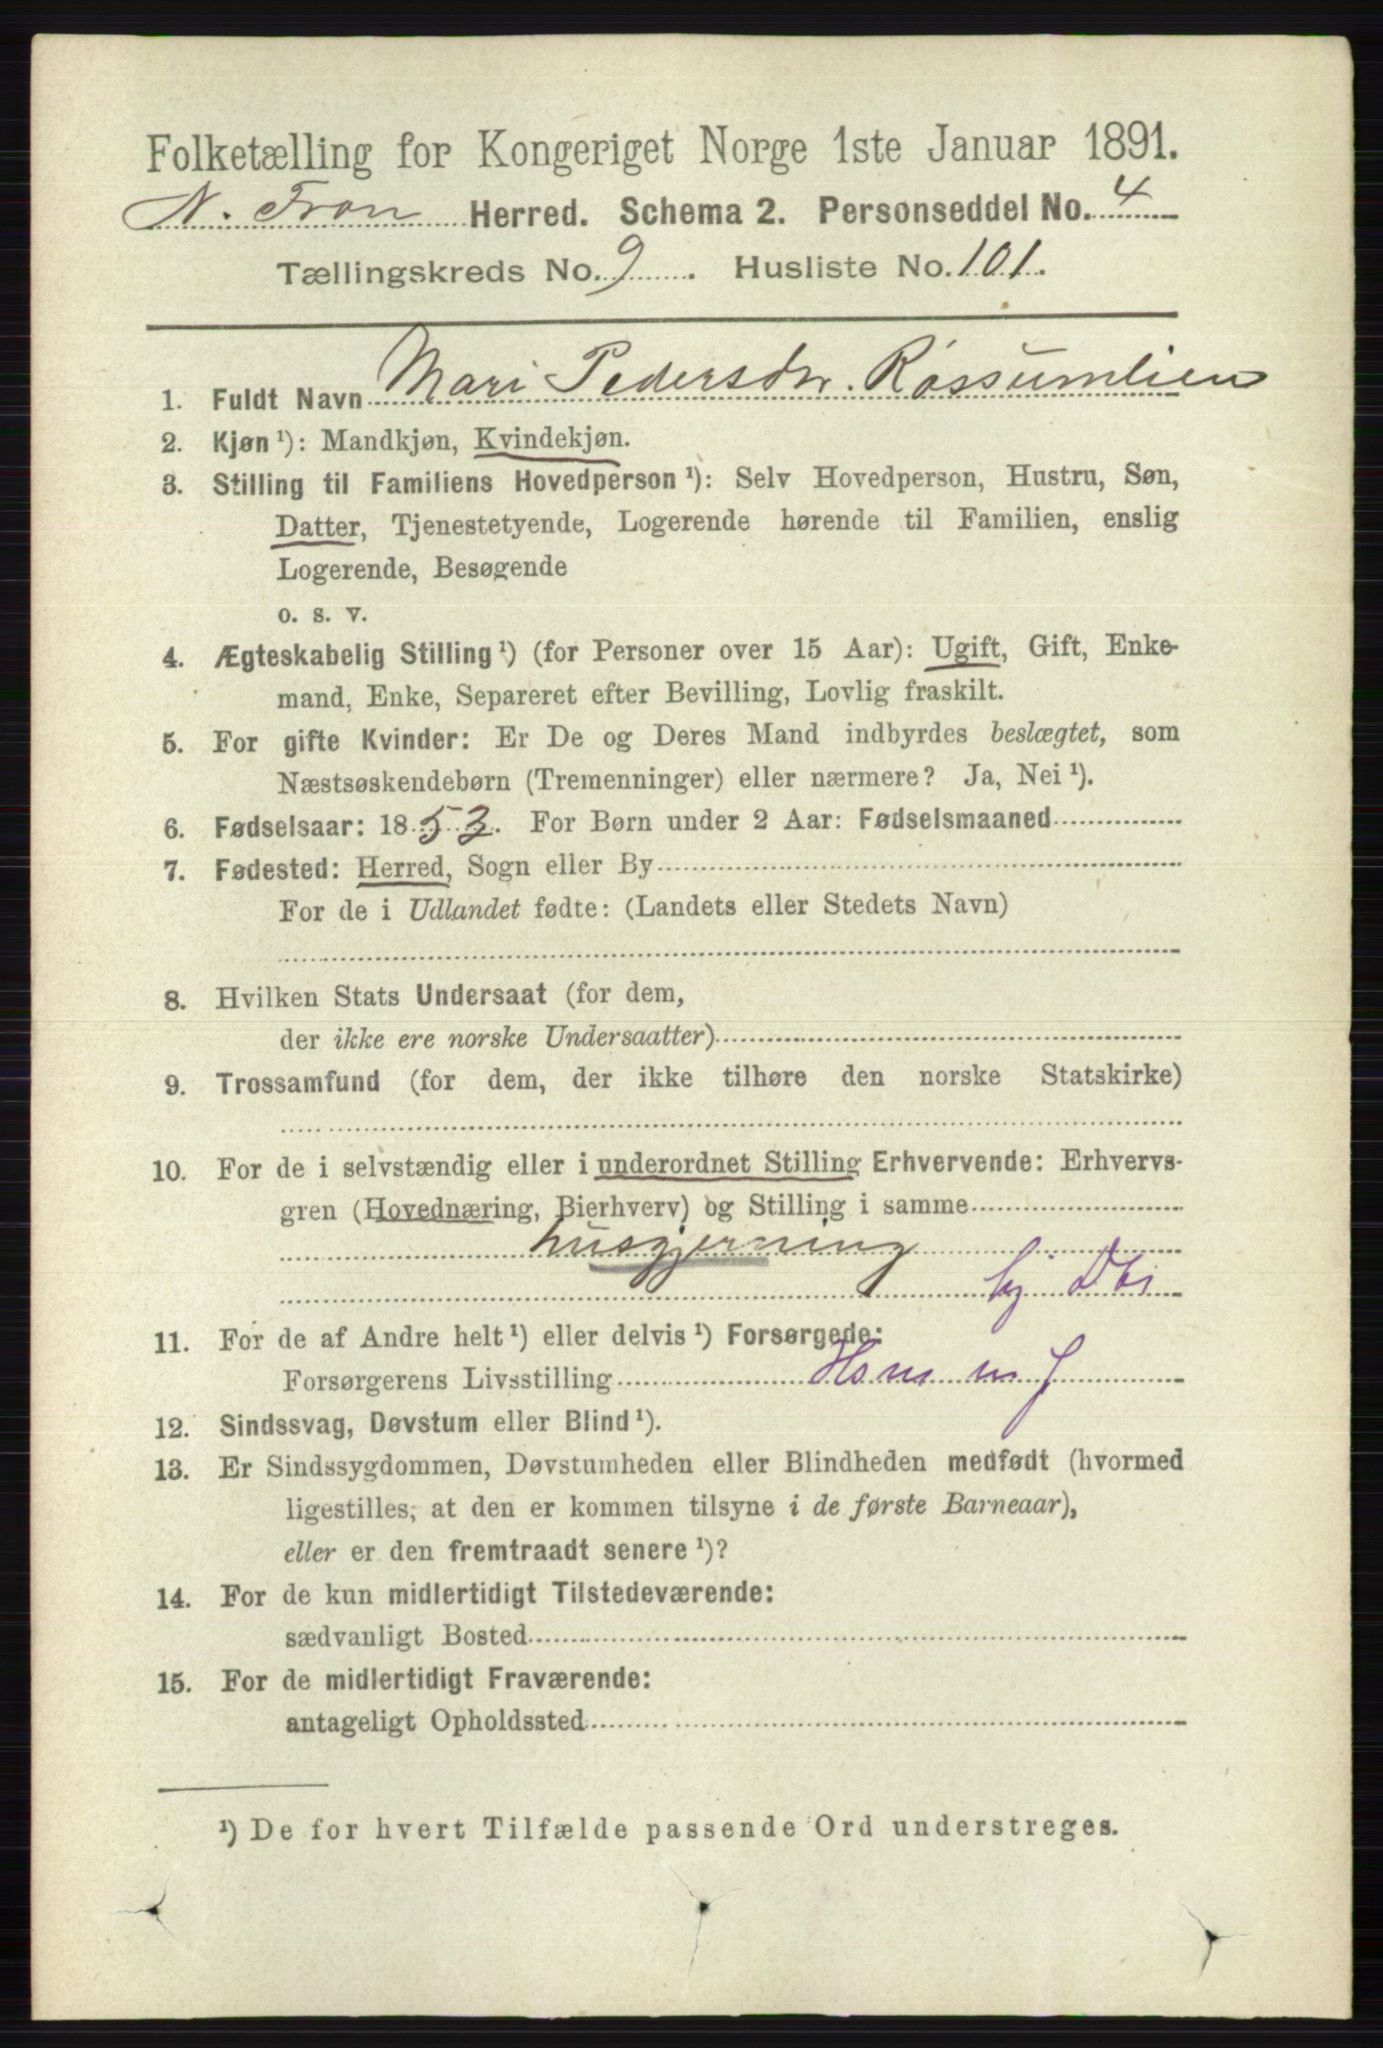 Folketælling for Kongeriget Norge 1ste Januar 1891.
N. Fron Herred. Schema 2. Personseddel No. 4
Tællingskreds No. 9. Husliste No. 101.
1. Fuldt Navn Mari Pedersdtr. Røssumlien
2. Kjøn ¹): Mandkjøn, Kvindekjøn.
3. Stilling til Familiens Hovedperson ¹): Selv Hovedperson, Hustru, Søn,
Datter, Tjenestetyende, Logerende hørende til Familien, enslig
Logerende, Besøgende
o. s. v.
4. Ægteskabelig Stilling ¹) (for Personer over 15 Aar): Ugift, Gift, Enke-
mand, Enke, Separeret efter Bevilling, Lovlig fraskilt.
5. For gifte Kvinder: Er De og Deres Mand indbyrdes beslægtet, som
Næstsøskendebørn (Tremenninger) eller nærmere? Ja, Nei ¹).
6. Fødselsaar: 1853. For Børn under 2 Aar: Fødselsmaaned
7. Fødested: Herred, Sogn eller By
For de i Udlandet fødte: (Landets eller Stedets Navn)
8. Hvilken Stats Undersaat (for dem,
der ikke ere norske Undersaatter)
9. Trossamfund (for dem, der ikke tilhøre den norske Statskirke)
10. For de i selvstændig eller i underordnet Stilling Erhvervende: Erhvervs-
gren (Hovednæring, Bierhverv) og Stilling i samme
husgjerning
11. For de af Andre helt ¹) eller delvis ¹) Forsørgede:
Forsørgerens Livsstilling
12. Sindssvag, Døvstum eller Blind ¹).
13. Er Sindssygdommen, Døvstumheden eller Blindheden medfødt (hvormed
ligestilles, at den er kommen tilsyne i de første Barneaar),
eller er den fremtraadt senere ¹)?
14. For de kun midlertidigt Tilstedeværende:
sædvanligt Bosted
15. For de midlertidigt Fraværende:
antageligt Opholdssted
¹) De for hvert Tilfælde passende Ord understreges.